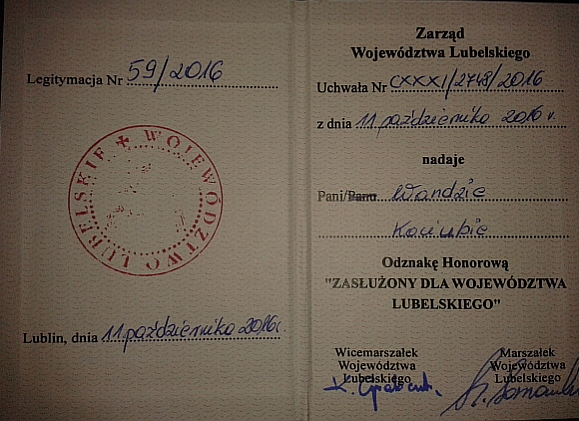 Legitymacja Nr 59/2016
WOJEWÓDZTWO LUBELSKIE
Lublin, dnia 11 października 2016r.
Zarząd
Województwa Lubelskiego
Uchwała Nr CXXXI/2748/2016
z dnia 11 października 2016 r.
nadaje
Pani/Panu Wandzie
Kociubie
Odznakę Honorową
"ZASŁUŻONY DLA WOJEWÓDZTWA
LUBELSKIEGO"
Wicemarszałek
Województwa
Lubelskiego
Marszałek
Województwa
Lubelskiego